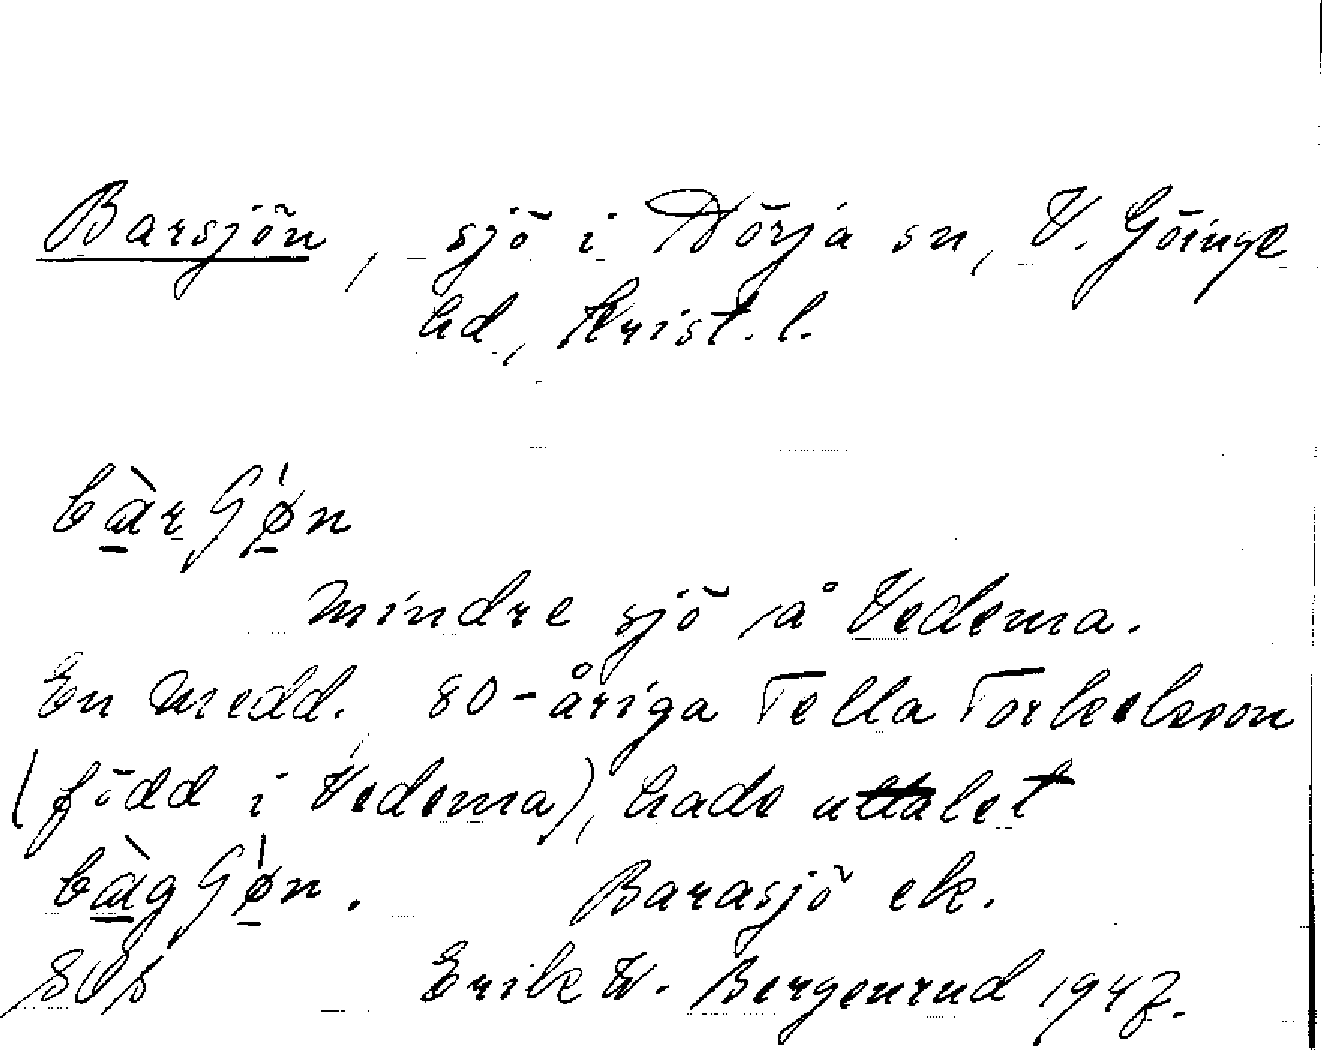 Barsjön, sjö i Nörja sn, V. Göinge
hd, Krist. l.
bàrʃǿn
mindre sjö å Vedema.
En medd. 80-åriga Tella Torkelsson
(född i Vedema), hade uttalet
bàgʃǿn. Barasjö ek.
Erik W. Bergenrud 1947.